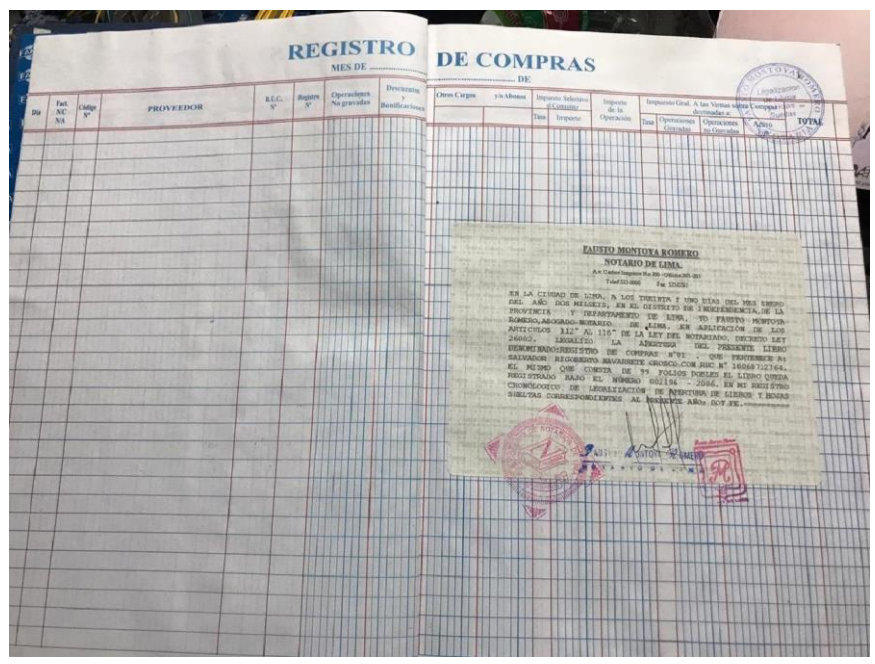 REGISTRO DE COMPRAS
MES DE ........................ DE
Día
Fact. N/C N/A
Código Nº
PROVEEDOR
R.U.C. Nº
Registro Nº
Operaciones No gravadas
Descuentos y Bonificaciones
Otros Cargos
y/o Abonos
Impuesto Selectivo al Consumo
Tasa
Importe
Importe de la Operación
Impuesto Gral. A las Ventas sobre Compras destinadas a:
Tasa
Operaciones Gravadas
Operaciones no Gravadas
TOTAL
MONTOYA ROMERO
Legalización
FAUSTO MONTOYA ROMERO
NOTARIO DE LIMA.
EN LA CIUDAD DE LIMA, A LOS TREINTA Y UNO DÍAS DEL MES ENERO
DEL AÑO DOS MILSEIS, EN EL DISTRITO DE INDEPENDENCIA, DE LA
PROVINCIA Y DEPARTAMENTO DE LIMA, YO FAUSTO MONTOYA
ROMERO, ABOGADO-NOTARIO DE LIMA, EN APLICACIÓN DE LOS
ARTICULOS 112° AL 116° DE LA LEY DEL NOTARIADO, DECRETO LEY
26002, LEGALIZO LA APERTURA DEL PRESENTE LIBRO
DENOMINADO:REGISTRO DE COMPRAS N°01 , QUE PERTENECE A:
SALVADOR RIGOBERTO NAVARRETE OROSCO CON RUC N°
EL MISMO QUE CONSTA DE 99 FOLIOS DOBLES EL LIBRO QUEDA
REGISTRADO BAJO EL NÚMERO 002196 - 2006, EN MI REGISTRO
CRONOLÓGICO DE LEGALIZACIÓN DE APERTURA DE LIBROS Y HOJAS
SUELTAS CORRESPONDIENTES AL PRESENTE AÑO; DOY FE.
MONTOYA ROMERO
NOTARIO DE LIMA